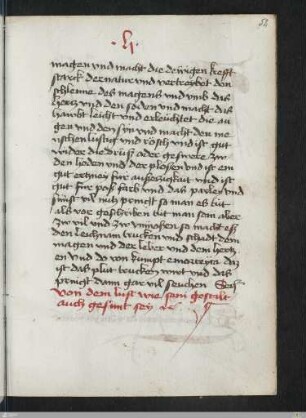 58
· h ·
magen vnd macht die dewigen krefft
starck der natur vnd vertreybet den
schleime des magens vnd vmb das
hertz vnd den soden vnd macht das
hawbt leicht vnd erleuchtet die au
gen vnd den syn vnd macht den me
nschen lustig vnd rösch vnd ist gut
wider die drüsz oder geswere zw
den hoden vnd der plosen vnd ist ein
gut erczney für aussiczigkait vnd ist
gut für posz farb vnd das
sunst vil nutz pringt so man es bit
als vor geschriben bit man sam aber
zw vil vnd zw vnmossen so macht es
den leichnam trucken vnd schadt dem
magen vnd der leber vnd dem hertz
en vnd do von kumpt daz
ist das plut trucken wirt vnd das
pringt dann gar vil seuchen
Von dem lust wie sam gestalt
auch gesunt sey